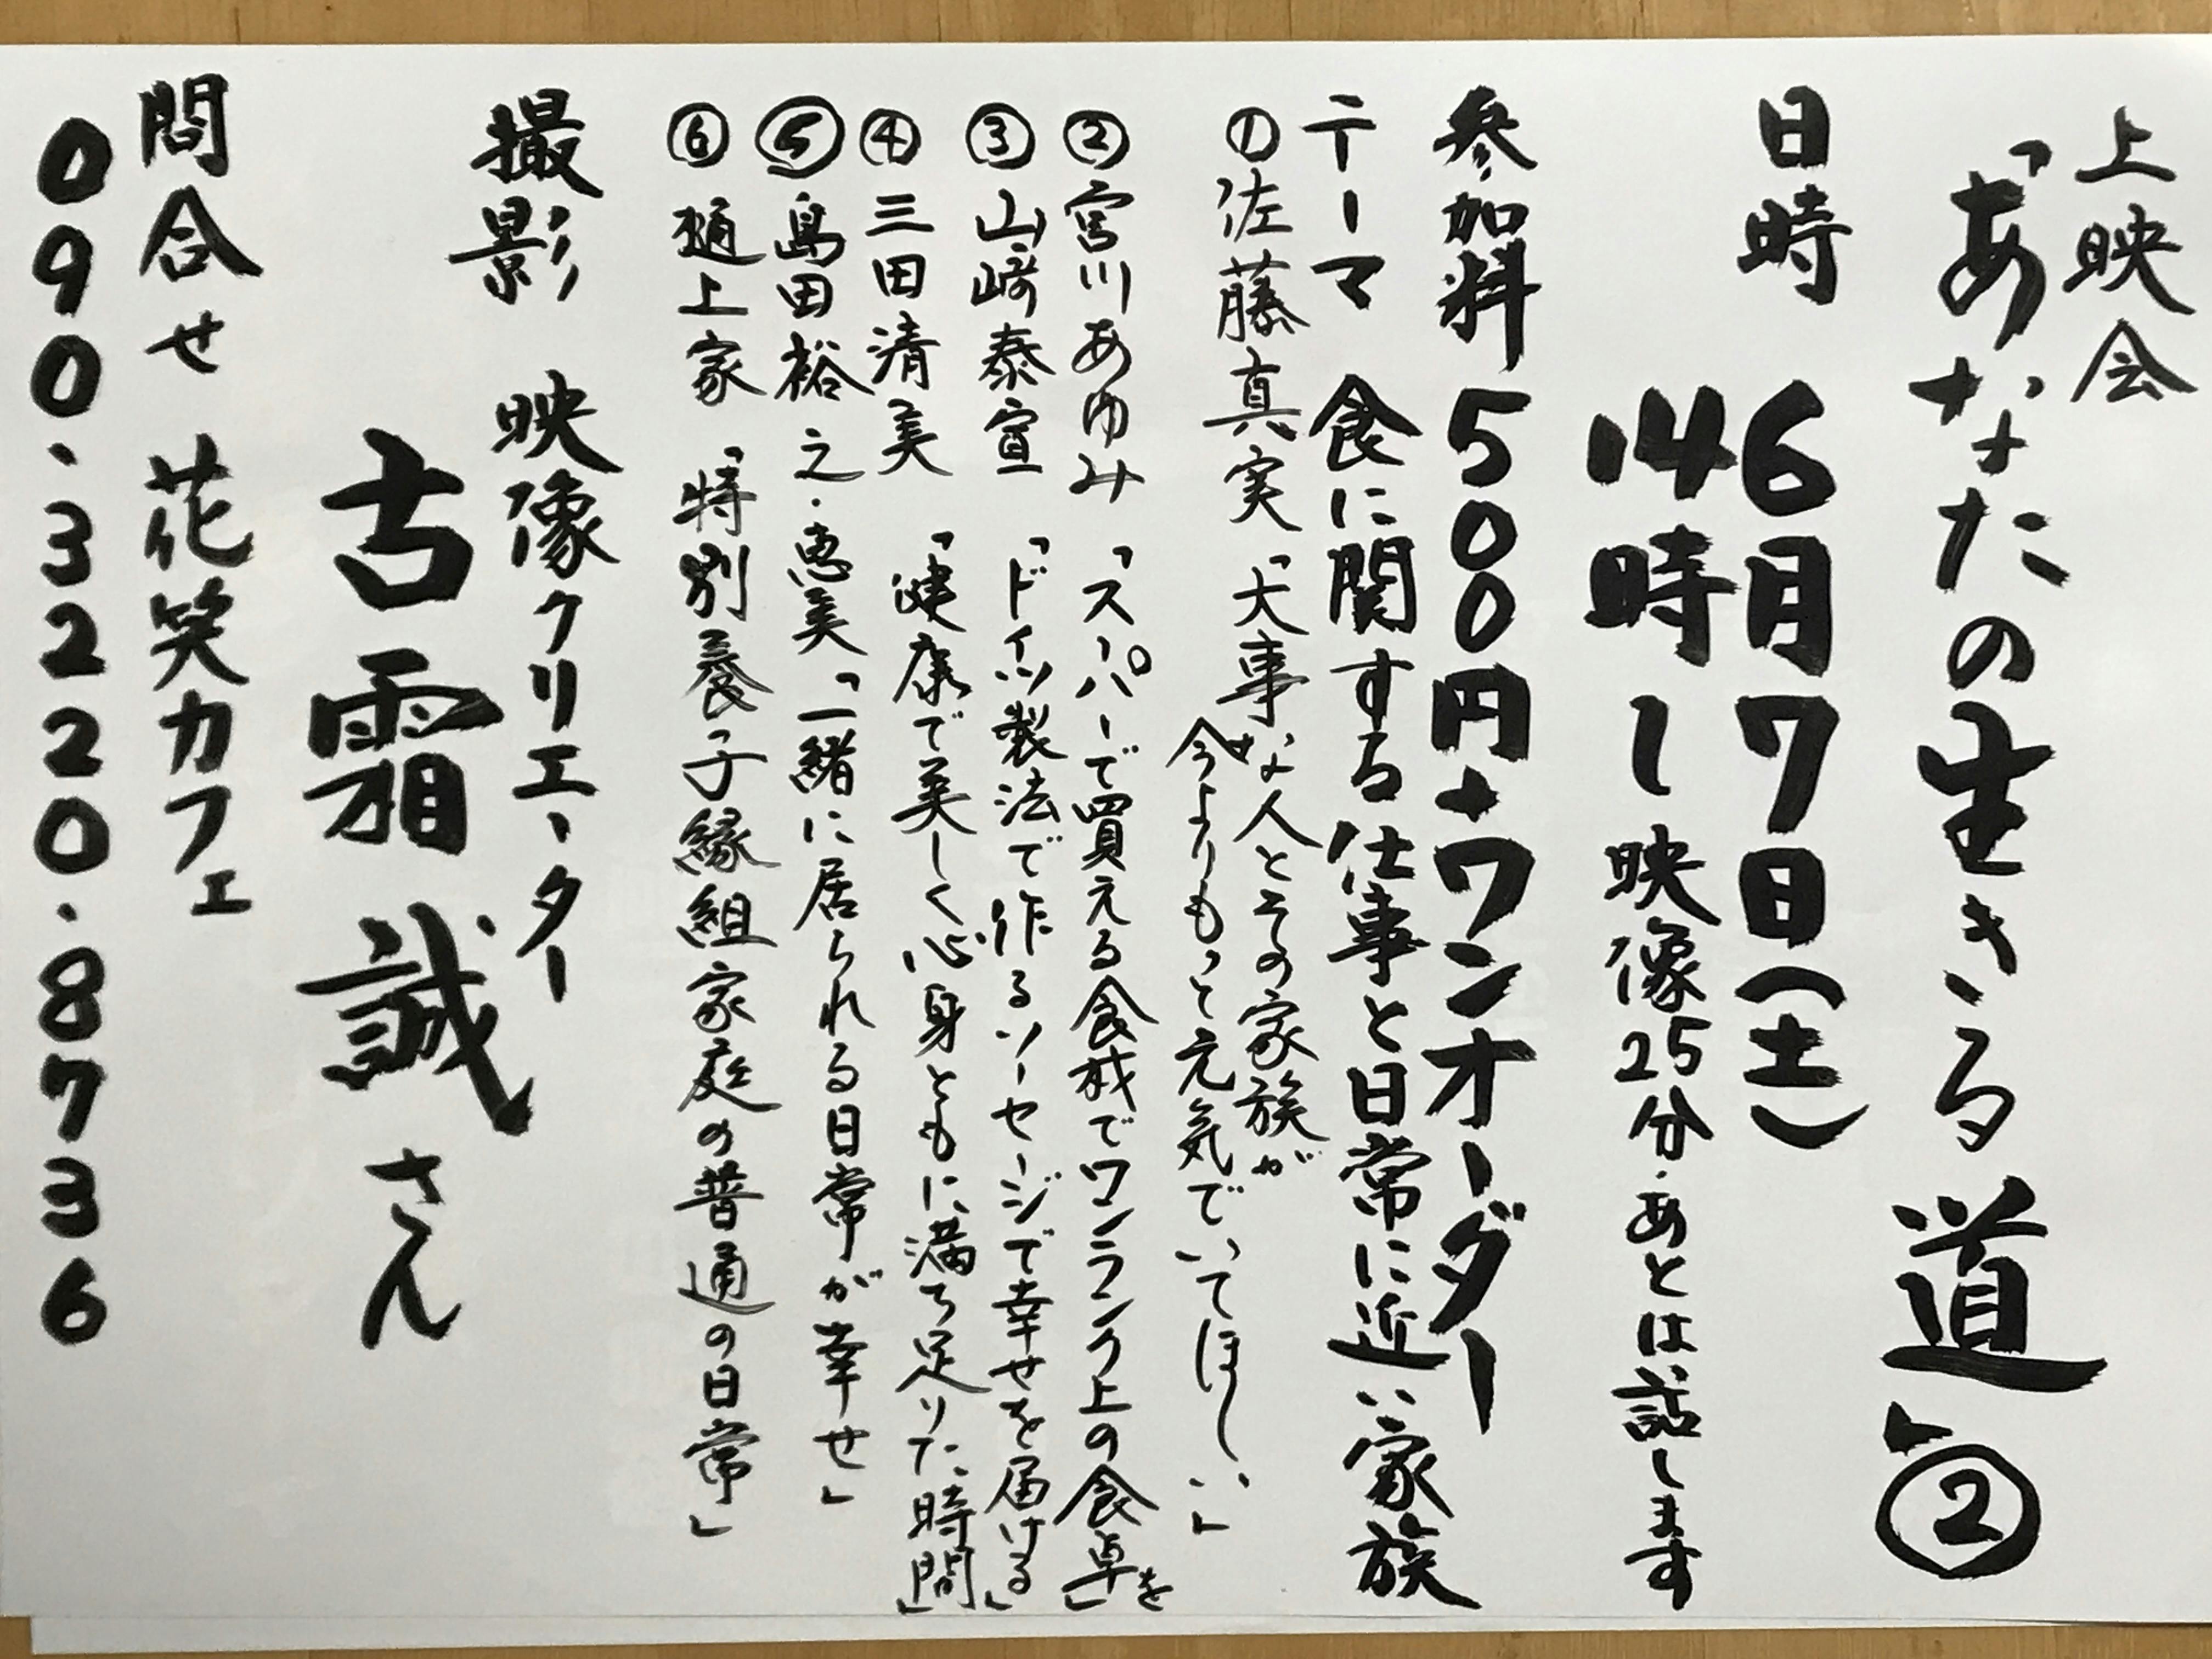 上映会
「あなたの生きる道」②
日時 6月7日(土)
14時〜映像25分・あとは、話します
参加料 500円+ワンオーダー
テーマ 食に関する仕事と日常に近い家族
①佐藤真実「大事な人とその家族が
今よりもっと元気でいてほしい」
②宮川あゆみ「スーパーで買える食材でワンランク上の食卓を」
③山﨑泰宣「ドイツ製法で作るソーセージで幸せを届ける」
④三田清美「健康で美しく心身ともに満ち足りた時間」
⑤島田裕之・恵美「一緒に居られる日常が幸せ」
⑥樋上家「特別養子縁組家庭の普通の日常」
撮影 映像クリエーター
古霜誠さん
問合せ 花笑カフェ
090.3220.8736